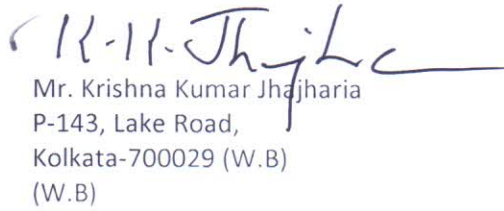 K.K. Jhajharia
Mr. Krishna Kumar Jhajharia
P-143, Lake Road,
Kolkata-700029 (W.B)
(W.B)